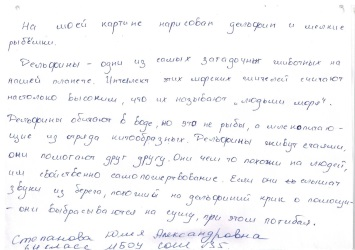 На моей картине нарисован дельфин и мелкие
рыбёшки.
Дельфины - одни из самых загадочных животных на
нашей планете. Интеллект этих морских жителей считают
настолько высоким, что их называют "людьми моря".
Дельфины обитают в воде, но это не рыбы, а млекопитаю-
щие из отряда китообразные. Дельфины живут стаями,
они помогают друг другу. Они чем то похожи на людей,
им свойственно самопожертвование. Если они слышат
звуки из берега, похожий на дельфиний крик о помощи-
- они выбрасываются на сушу, при этом погибая.
Степанова Юлия Александровна
класс МБОУ СОШ №35